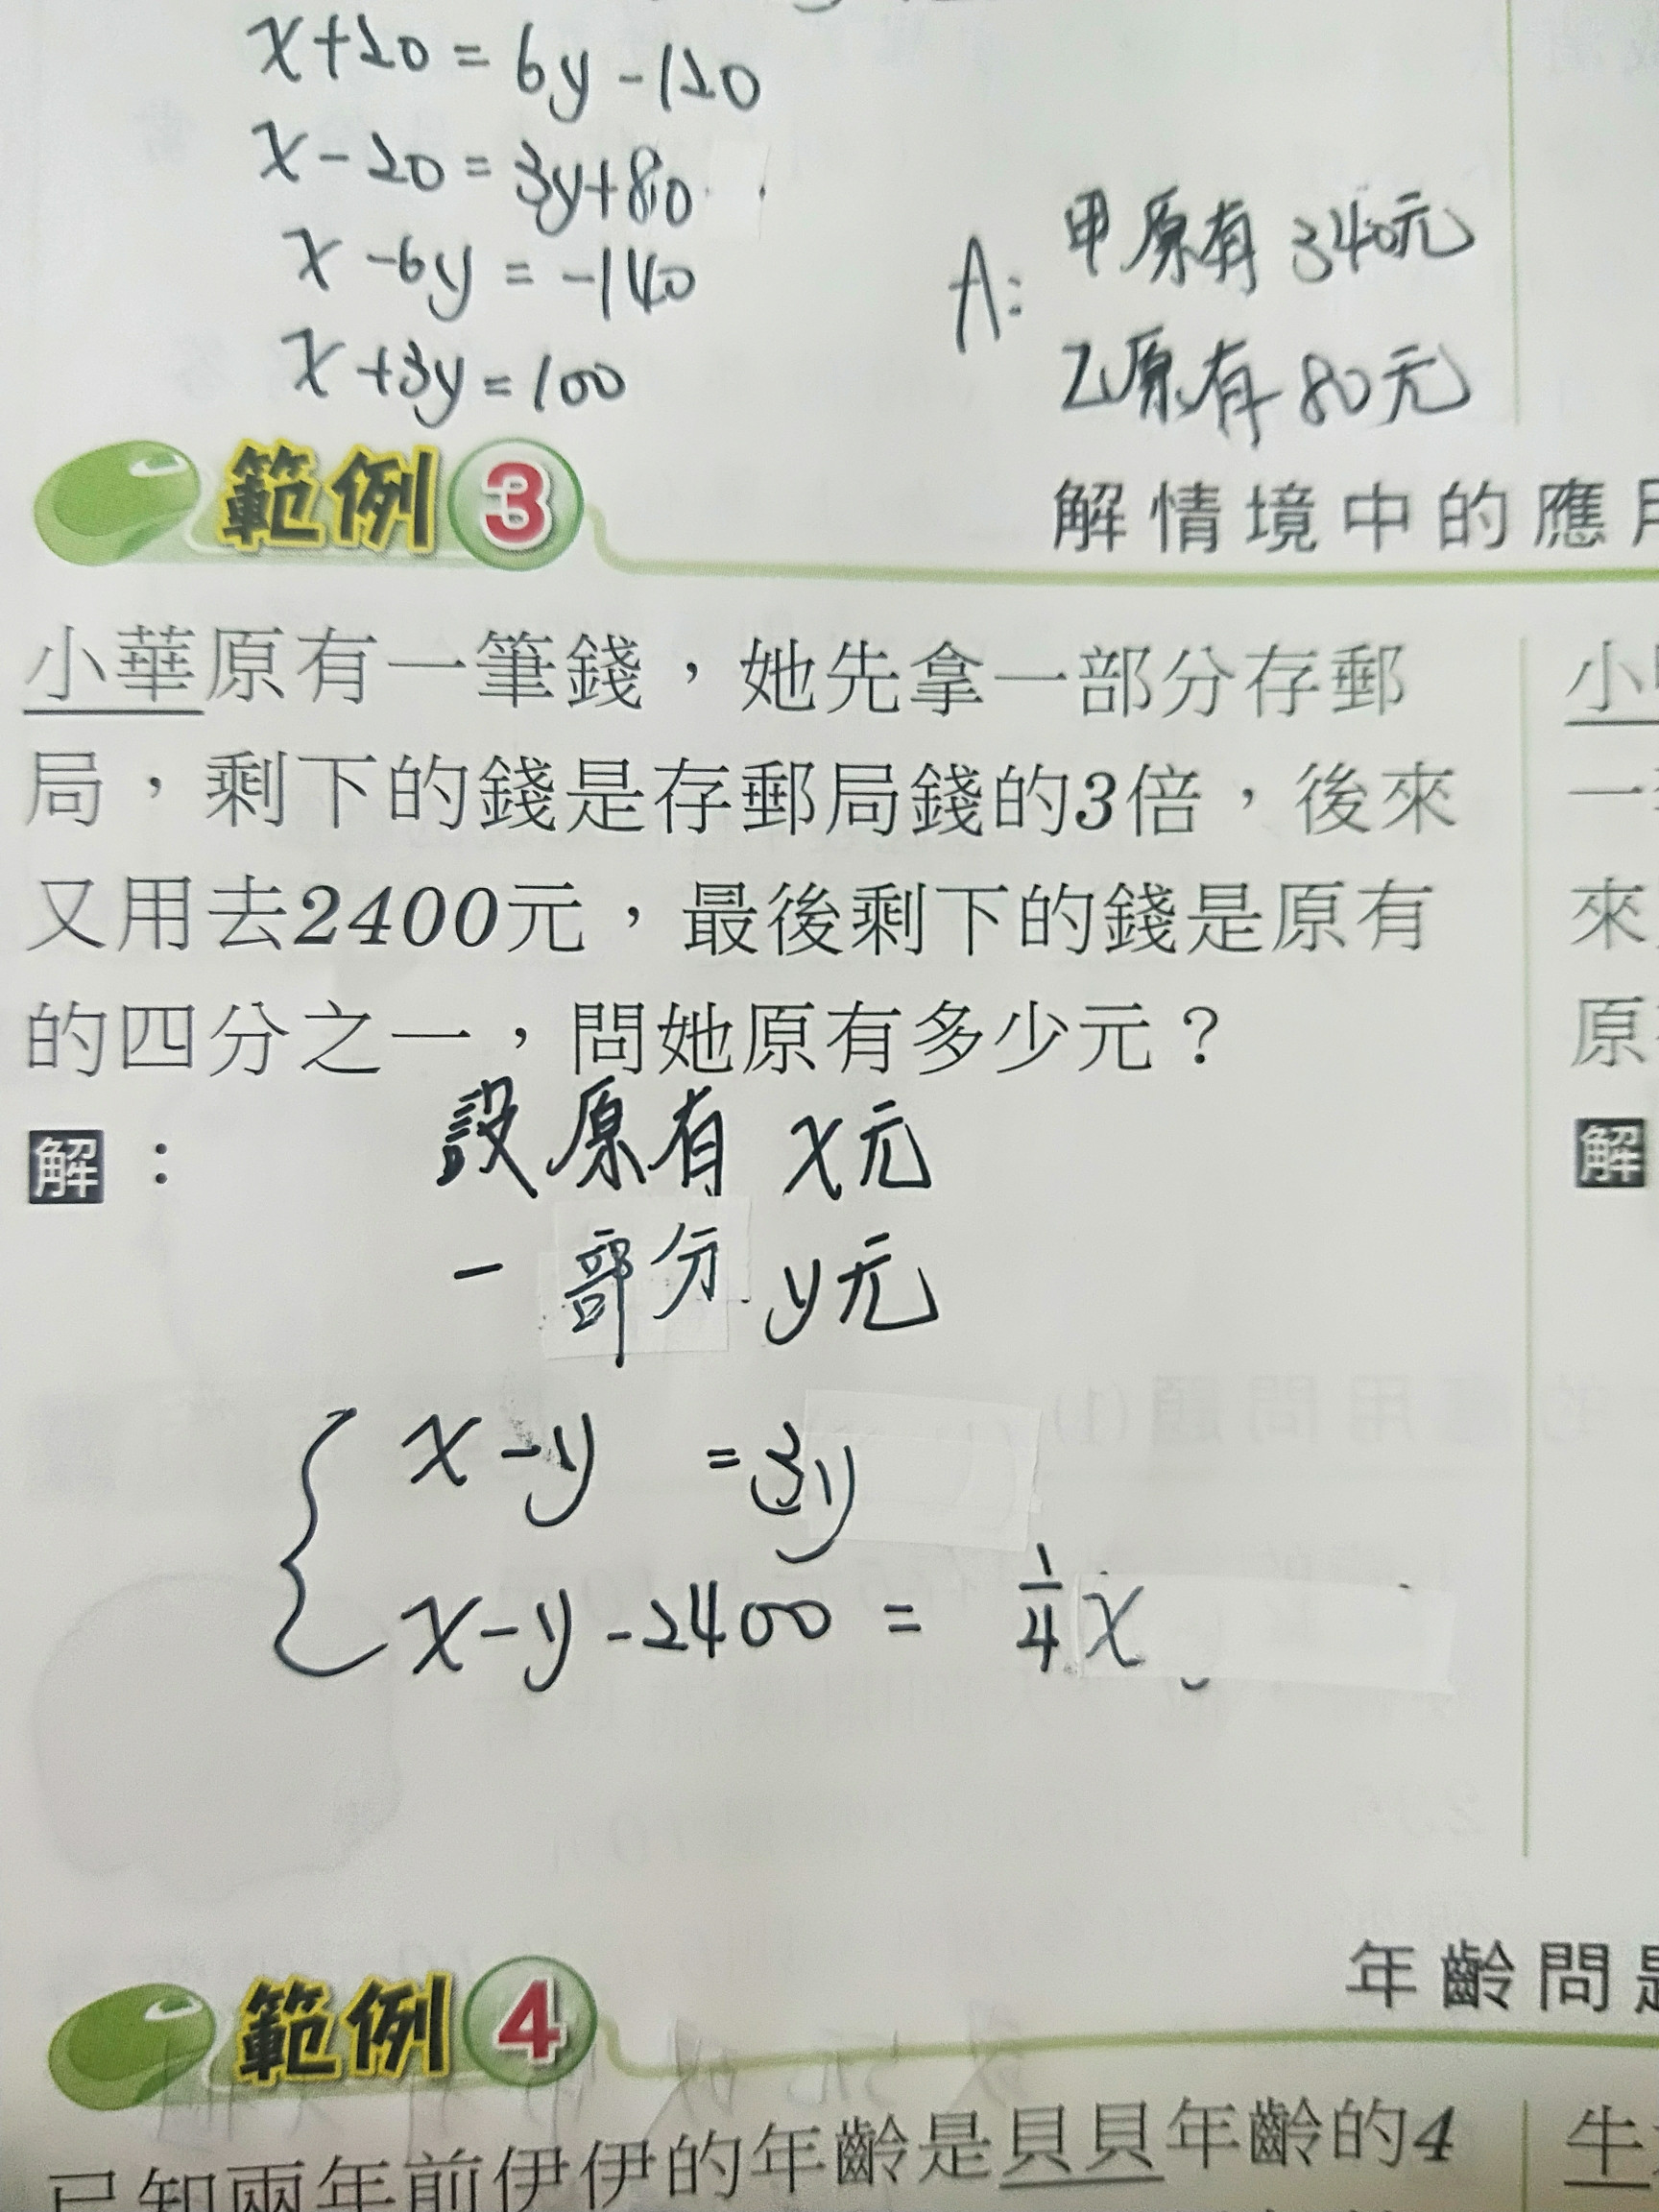 x+20 = 6y-120
x-20 = 3y+80
x-6y = -140
x+3y = 100
A: 甲原有 340元
乙原有 80元
範例 3
解情境中的應
小華原有一筆錢，她先拿一部分存郵
局，剩下的錢是存郵局錢的3倍，後來
又用去2400元，最後剩下的錢是原有
的四分之一，問她原有多少元？
解：
設原有 x元
一部分 y元
x-y = 3y
x-y-2400 = 1/4 x
小
一
來
原
解
範例 4
年齡問
已知兩年前伊伊的年齡是貝貝年齡的4
牛